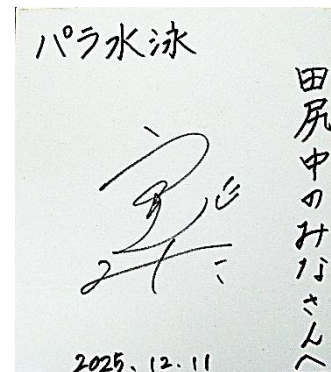 パラ水泳
田尻中のみなさんへ
2025.12.11